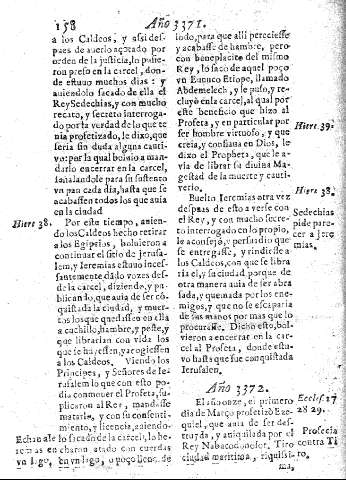 158
Año 3371.
a los Caldeos, y assi des-
pues de auerlo açotado por
orden de la justicia, lo pusie-
ron preso en la carcel, don-
de estuuo muchos dias: y
auiendolo sacado de ella el
Rey Sedechias, y con mucho
recato, y secreto interroga-
do por la verdad de lo que te-
nia profetizado, le dixo, que
seria sin duda alguna cauti-
vo: por la qual boluio a man-
darlo encerrar en la carcel,
señalandole para su sustento
vn pan cada dia, hasta que se
acabassen todos los que auia
en la ciudad
Hiere 38.
Por este tiempo, auien-
do los Caldeos hecho retirar
a los Egipcios, boluieron a
continuar el sitio de Jerusa-
lem, y Ieremias estauo inces-
santemente dado vozes des-
de la carcel, diziendo, y pu-
blicando, que auia de ser co-
quistada la ciudad, y muer-
tos los que quedassen en ella
a cuchillo, hambre, y peste, y
que librarian con vida los
que se huyessen, y acogiessen
a los Caldeos. Viendo los
Principes, y Señores de Ie-
rusalem lo que con esto po-
dia conmouer el Profeta, su-
plicaron al Rey, mandasse
matarle, y con su consenti-
miento, y licencia, auiendo-
Echanale
lo sacado de la carcel, lo he-
remias en
charon atado con cuerdas
vn lago,
en vn lago, o poço lleno de
para que allí pereciesse
y acabasse de hambre, pero
con beneplacito del mismo
Rey, lo sacò de aquel poço
vn Eunuco Etiope, llamado
Abdemelech, y le puso, y re-
cluyò en la carcel, al qual por
este beneficio que hizo al
Profeta, y en particular por
ser hombre virtuoso, y que
creia, y confiaua en Dios, le
dixo el Propheta, que le a-
via de librar su divina Ma-
gestad de la muerte y cauti-
verio.
Hiere 39.
Hiere 38.
Buelto Ieremias otra vez
despues de esto a verse con
el Rey, y con mucho secre-
to interrogado en lo propio,
le aconsejò, y persuadio que
se entregasse, y rindiesse a
los Caldeos, con que se libra
ria el, y la ciudad porque de
otra manera auia de ser abra
sada, y quemada por los ene-
migos, y que no se escaparia
de sus manos por mas que lo
procurasse. Dicho esto, bol-
vieron a encerrar en la car-
cel al Profeta, donde estu-
vo hasta que fue conquistada
Jerusalen.
Sedechias
pide pare-
cer a Jere
mias.
Año 3372.
El año onze, el primero
dia de Março profetizò Eze-
quiel, que auia de ser des-
truyda, y aniquilada por el
Rey Nabucodonosor, Tiro
ciudad maritima, y riquissi-
ma,
Ecclef. 27
28 29.
Profecia
contra Ti
ro,